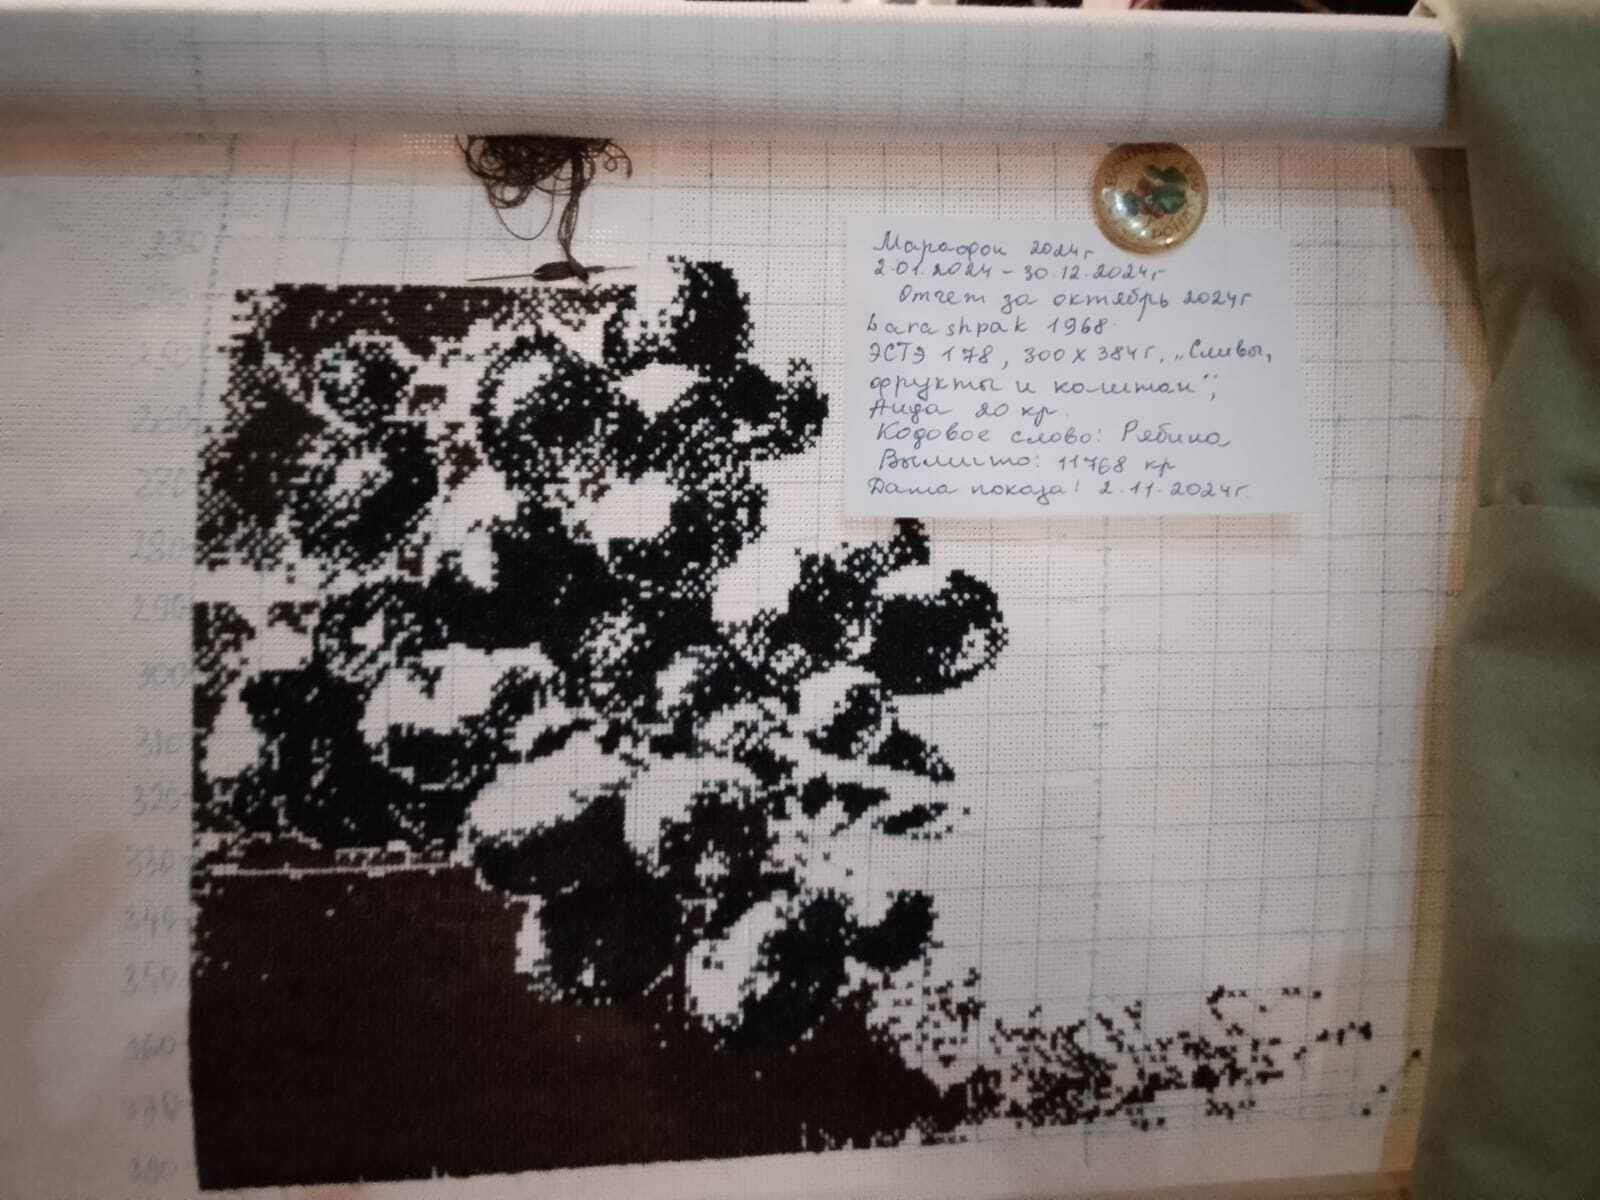 230
260
270
280
290
300
310
320
330
340
350
360
370
380
Марафон 2024г
2.01.2024 - 30.12.2024г
Отчет за октябрь 2024г
barashpak 1968
ЭСТЭ 178, 300 х 384г, „Сливы,
фрукты и каштан";
Аида 20 кр.
Кодовое слово: Рябина
Вышито: 11768 кр
Дата показа: 2.11.2024г.